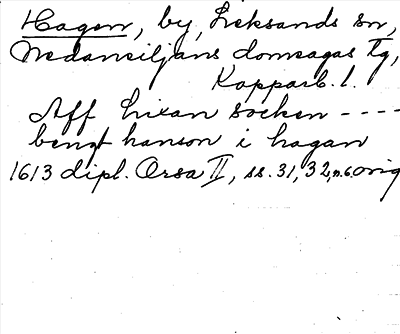 Hagen, by, Leksands sn,
Nedansiljans domsagas tg,
Kopparb. l.
Aff lixan socken ----
bengt hanson i hagan
1613 dipl. Orsa II, ss. 31, 32, n. 6. orig